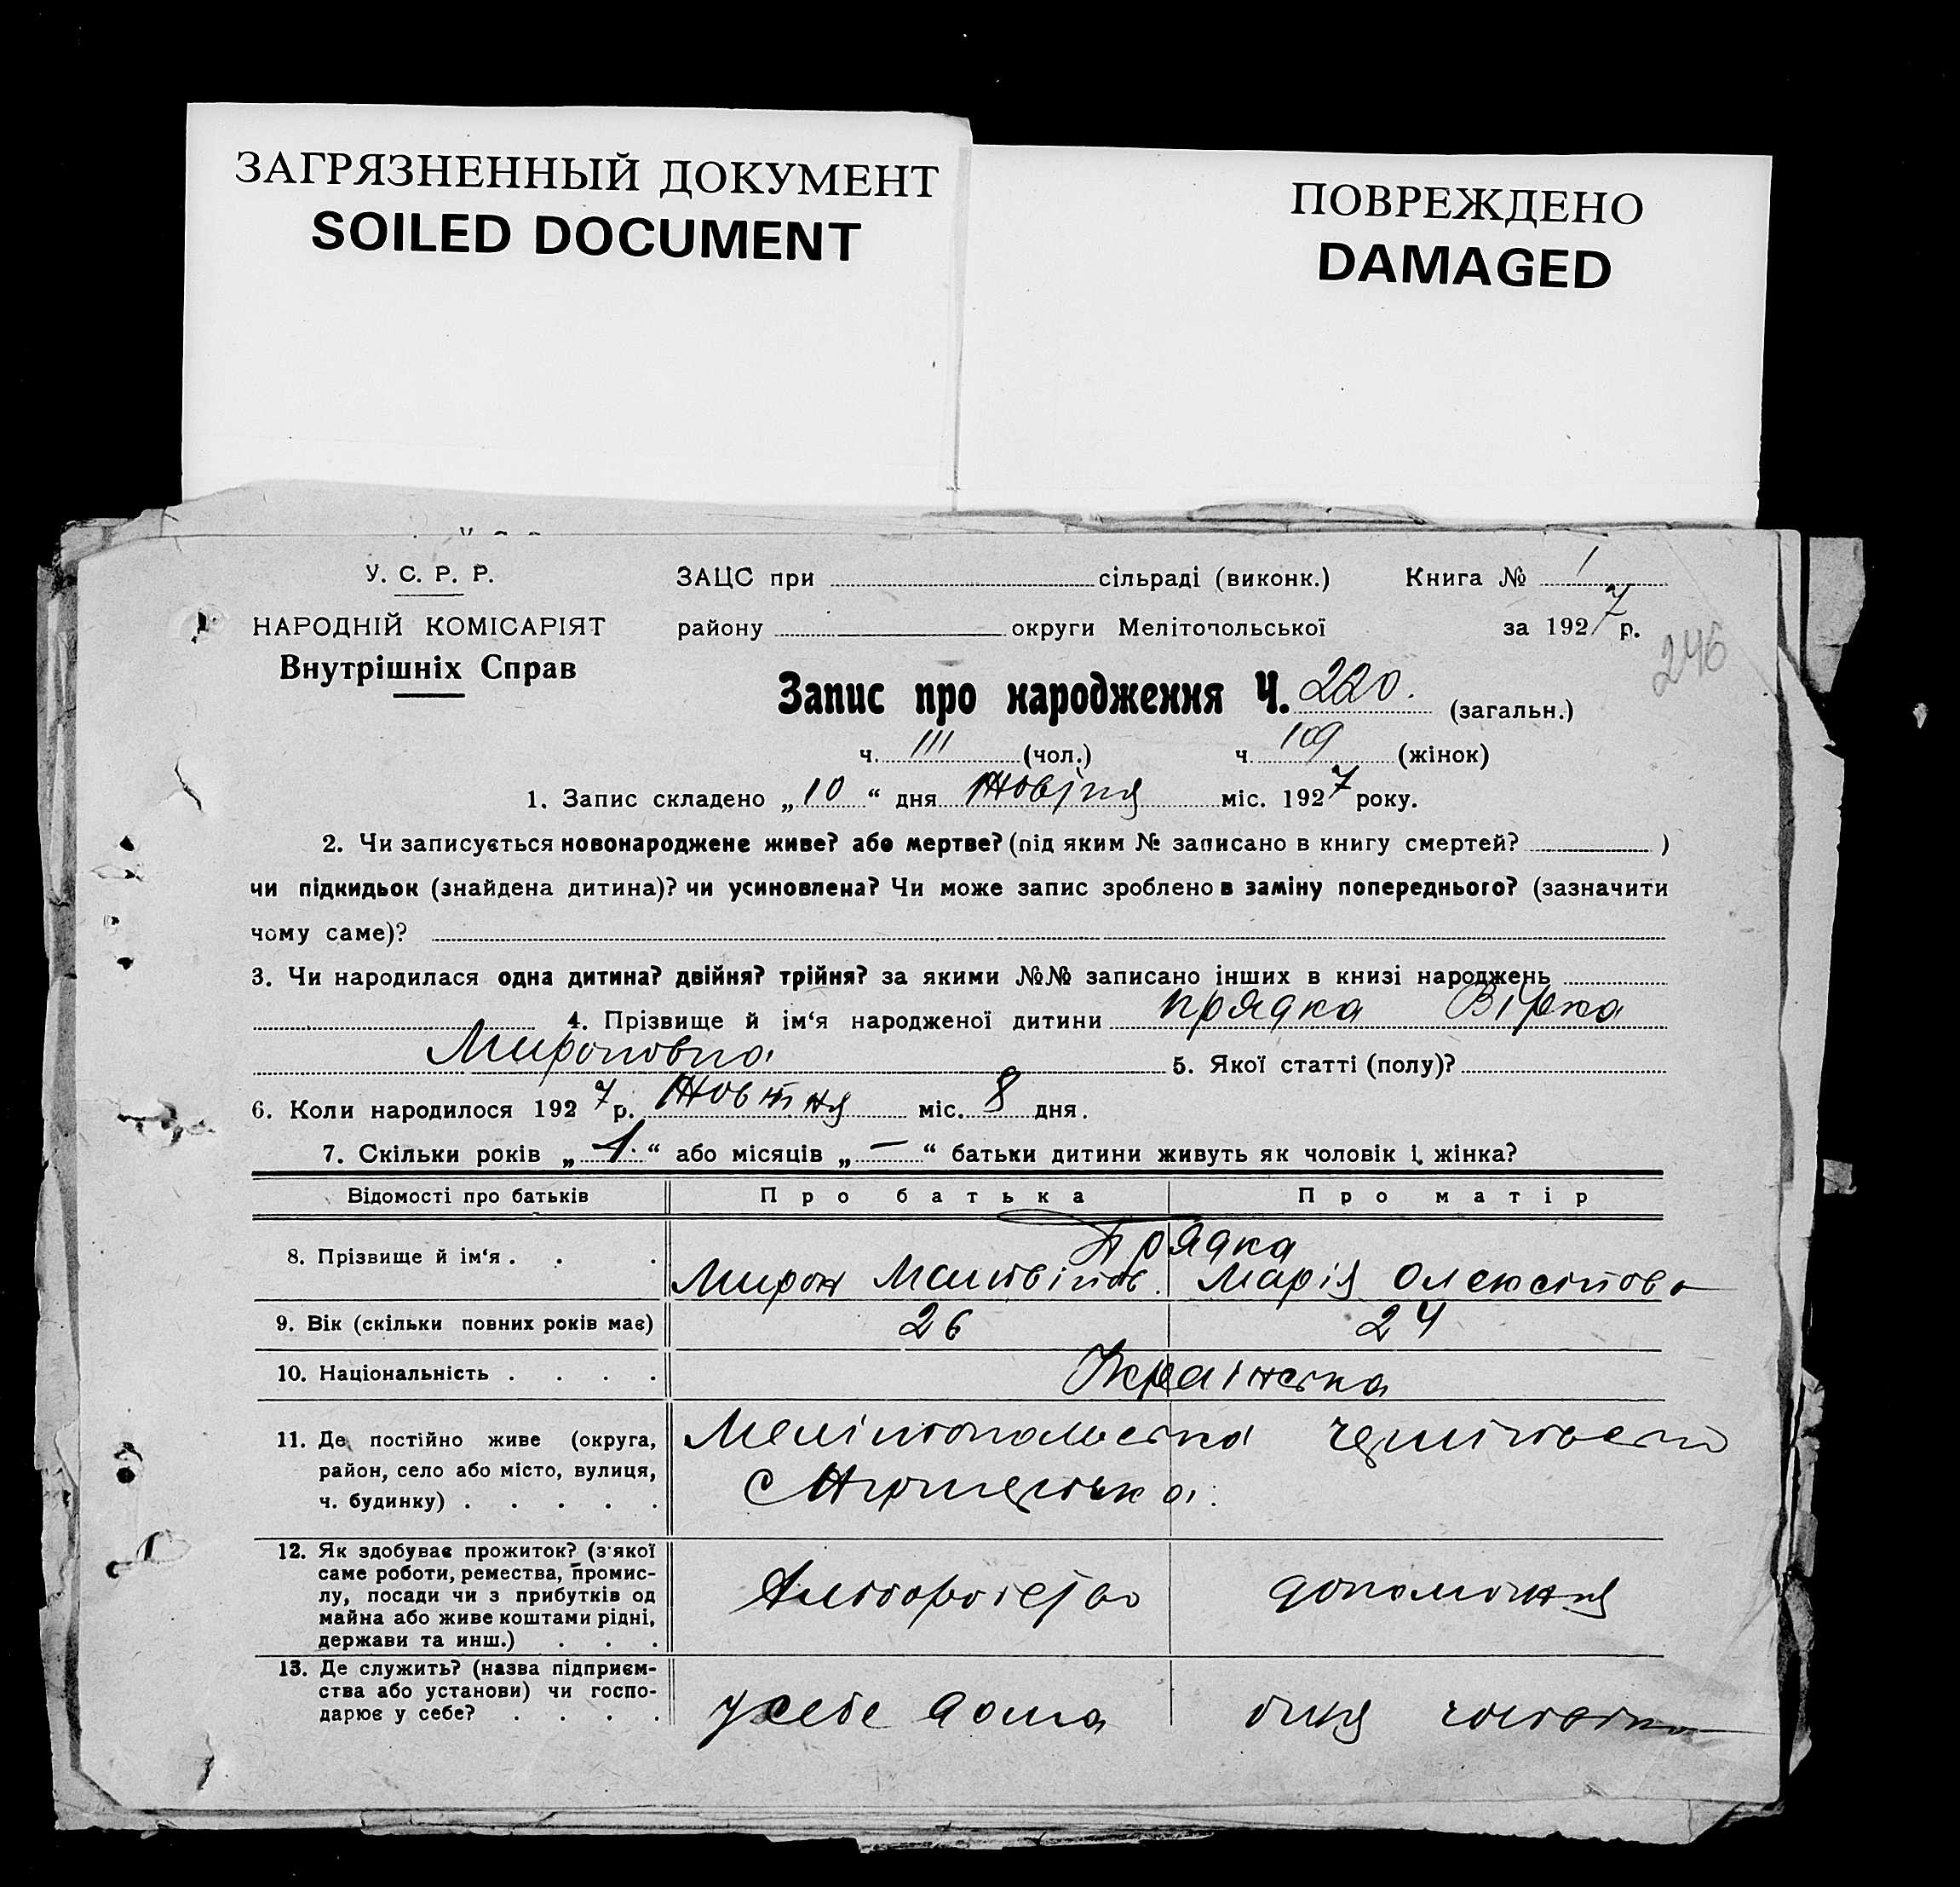 ЗАГРЯЗНЕННЫЙ ДОКУМЕНТ
SOILED DOCUMENT
ПОВРЕЖДЕНО
DAMAGED
У. С. Р. Р.
НАРОДНІЙ КОМІСАРІЯТ
Внутрішніх Справ
ЗАЦС при сільраді (виконк.) Книга № 1
району округи Мелітопольської за 1927 р.
246
Запис про народження Ч. 220. (загальн.)
ч. 111 (чол.) ч. 109 (жінок)
1. Запис складено „10“ дня Жовтня міс. 1927 року.
2. Чи записується новонароджене живе? або мертве? (під яким № записано в книгу смертей? )
чи підкидьок (знайдена дитина)? чи усиновлена? Чи може запис зроблено в заміну попереднього? (зазначити
чому саме)?
3. Чи народилася одна дитина? двійня? трійня? за якими №№ записано інших в книзі народжень
4. Прізвище й ім‘я народженої дитини Прядка Вірка
Мироновна 5. Якої статті (полу)?
6. Коли народилося 1927 р. Жовтня міс. 8 дня.
7. Скільки років „1.“ або місяців „—“ батьки дитини живуть як чоловік і жінка?
Відомості про батьків Про батька Про матір
8. Прізвище й ім‘я . . . Прядка
Мирон Матвіїов. Марія Олексіїова
9. Вік (скільки повних років має) 26 24
10. Національність . . . . Українська
11. Де постійно живе (округа,
район, село або місто, вулиця,
ч. будинку) . . . . .
Мелітопольська
12. Як здобуває прожиток? (з якої
саме роботи, ремества, промис-
лу, посади чи з прибутків од
майна або живе коштами рідні,
держави та инш.) . . .
13. Де служить? (назва підприєм-
ства або установи) чи госпо-
дарює у себе? . . . .
у себе дома біля чоловіка